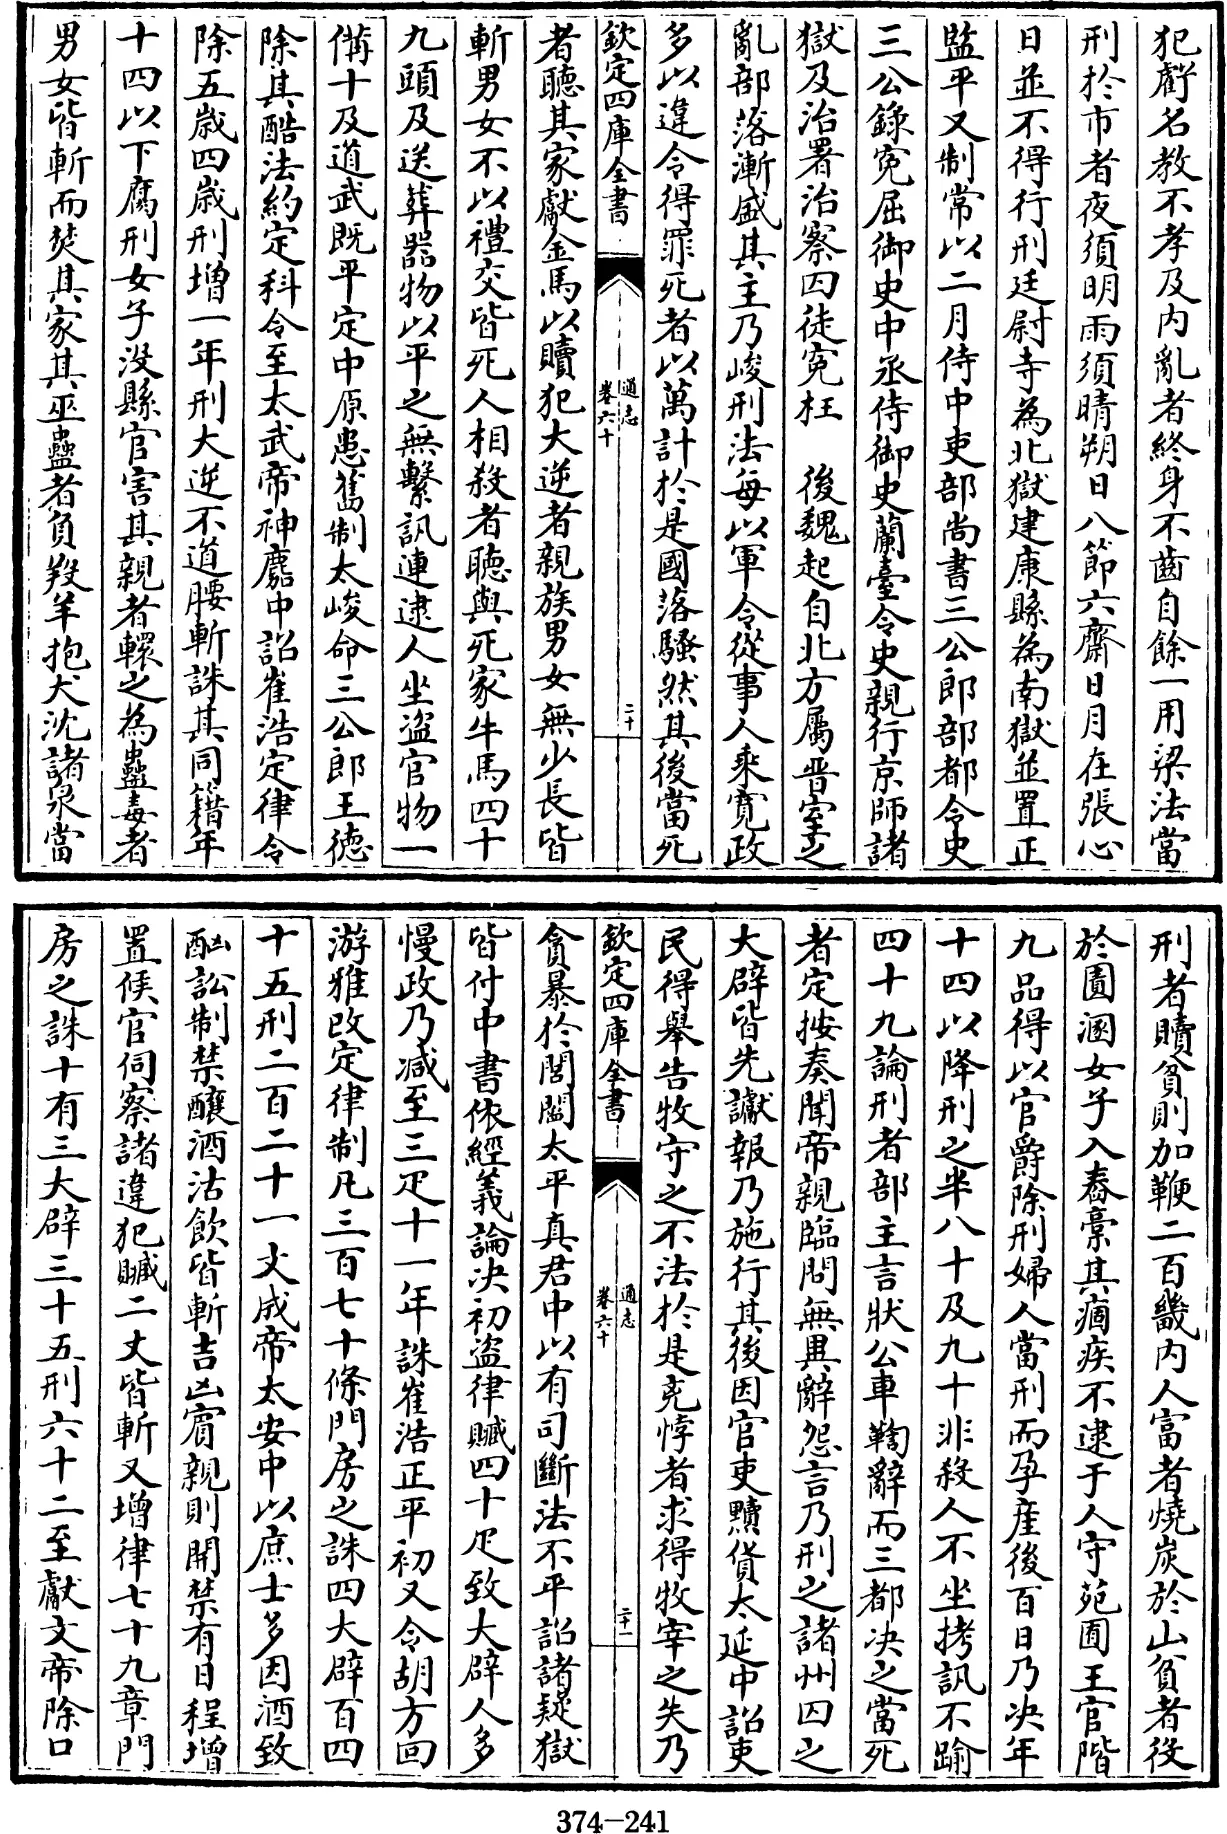 犯虧名教不孝及内亂者終身不齒自餘一用梁法當
刑於市者夜須明雨須晴朔日八節六齋日月在張心
日並不得行刑廷尉寺為北獄建康縣為南獄並置正
監平又制常以二月侍中吏部尚書三公郎部都令史
三公錄寃屈御史中丞侍御史蘭臺令史親行京師諸
獄及治署治察囚徒寃枉　後魏起自北方屬晉室之
亂部落漸盛其主乃峻刑法每以軍令從事人乘寛政
多以違令得罪死者以萬計於是國落騷然其後當死
欽定四庫全書
通志
卷六十
二十
者聽其家獻金馬以贖犯大逆者親族男女無少長皆
斬男女不以禮交皆死人相殺者聽與死家牛馬四十
九頭及送葬器物以平之無繫訊連逮人坐盜官物一
備十及道武既平定中原患舊制太峻命三公郎王德
除其酷法約定科令至太武帝神䴥中詔崔浩定律令
除五歲四歲刑增一年刑大逆不道腰斬誅其同籍年
十四以下腐刑女子沒縣官害其親者轘之為蠱毒者
男女皆斬而焚其家其巫蠱者負羖羊抱犬沈諸泉當
刑者贖貧則加鞭二百畿内人富者燒炭於山貧者役
於圊溷女子入舂槀其痼疾不逮于人守苑囿王官階
九品得以官爵除刑婦人當刑而孕產後百日乃决年
十四以降刑之半八十及九十非殺人不坐拷訊不踰
四十九論刑者部主言狀公車鞫辭而三都决之當死
者定按奏聞帝親臨問無異辭怨言乃刑之諸州囚之
大辟皆先讞報乃施行其後因官吏黷貨太延中詔吏
民得舉告牧守之不法於是兇悖者求得牧宰之失乃
欽定四庫全書
通志
卷六十
二十一
貪暴於閭閻太平真君中以有司斷法不平詔諸疑獄
皆付中書依經義論决初盜律贓四十疋致大辟人多
慢政乃減至三疋十一年誅崔浩正平初又令胡方回
游雅改定律制凡三百七十條門房之誅四大辟百四
十五刑二百二十一文成帝太安中以庶士多因酒致
酗訟制禁釀酒沽飲皆斬吉凶賔親則開禁有日程增
置候官伺察諸違犯贓二丈皆斬又增律七十九章門
房之誅十有三大辟三十五刑六十二至獻文帝除口
374-241